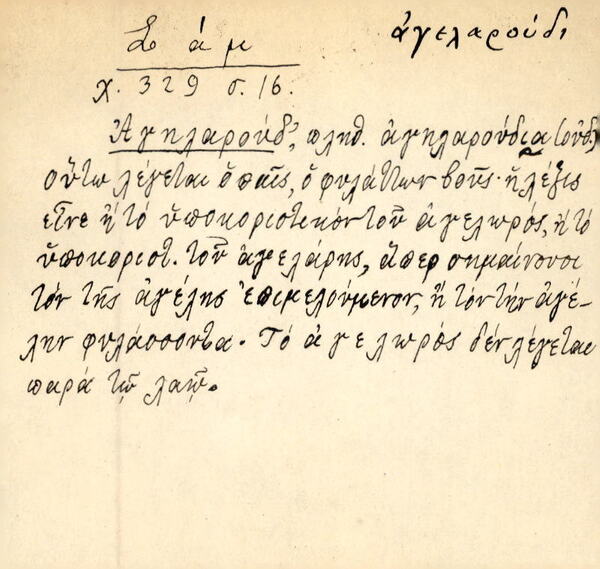 ἀγελαρούδι
Σάμ
χ. 329 σ. 16.
Ἀγηλαρούδ', πληθ. ἀγηλαρούδια (οὐδ.)
οὕτω λέγεται ὁ παῖς, ὁ φυλάττων βοῦς· ἡ λέξις
εἶνε ἢ τό ὑποκοριστικόν τοῦ ἀγελωρός, ἢ τό
ὑποκοριστ. τοῦ ἀγελάρης, ἅπερ σημαίνουσι
τόν τῆς ἀγέλης ἐπιμελούμενον, ἢ τόν τήν ἀγέ-
λην φυλάσσοντα. Τό ἀγελωρός δέν λέγεται
παρά τῷ λαῷ.